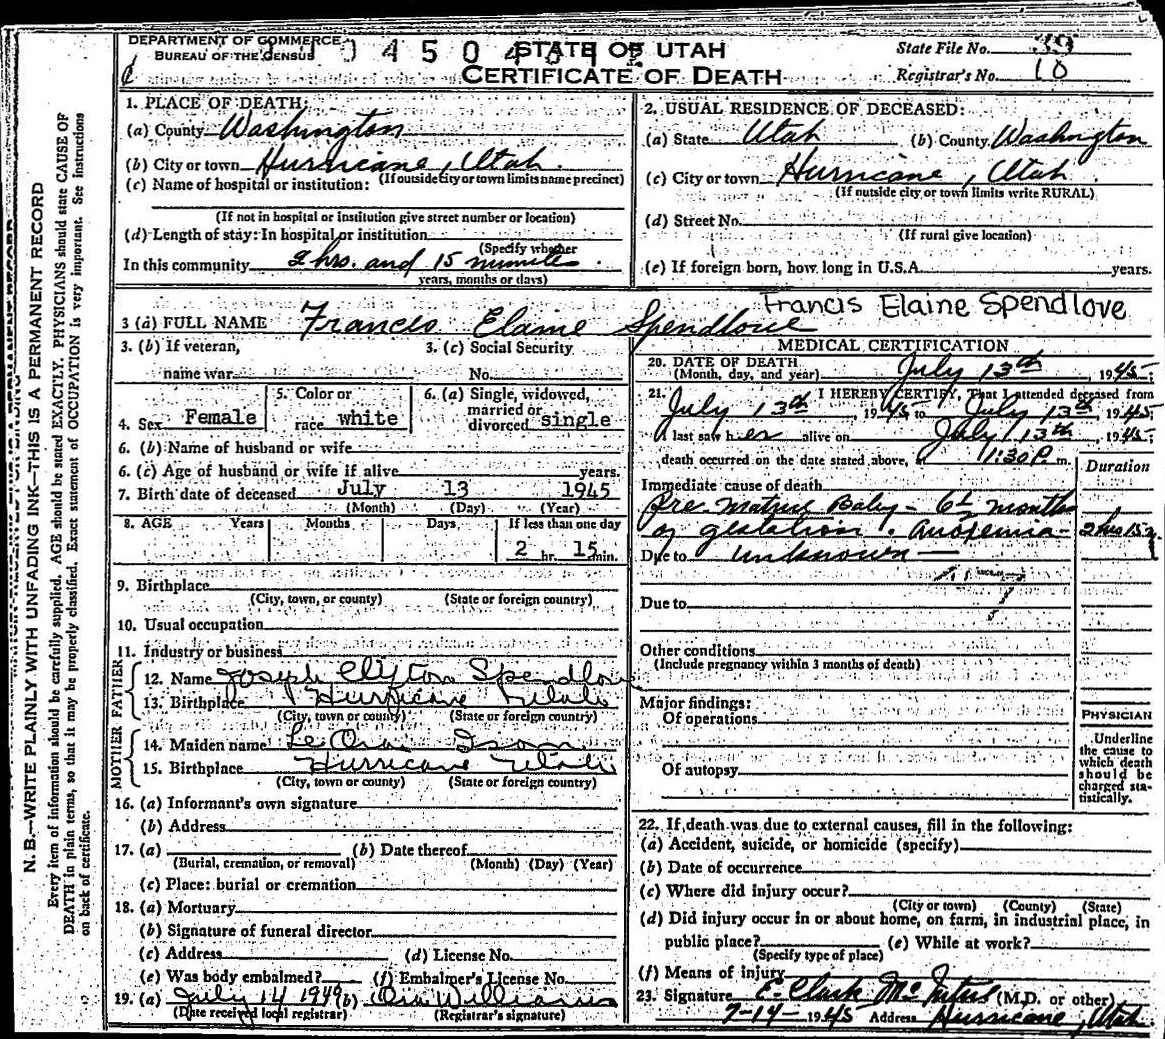 DEPARTMENT OF COMMERCE
BUREAU OF THE CENSUS
STATE OF UTAH
CERTIFICATE OF DEATH
State File No. 39
Registrar's No. 10
N. B.—WRITE PLAINLY WITH UNFADING INK—THIS IS A PERMANENT RECORD
Every item of information should be carefully supplied. AGE should be stated EXACTLY. PHYSICIANS should state CAUSE OF
DEATH in plain terms, so that it may be properly classified. Exact statement of OCCUPATION is very important. See instructions
on back of certificate.
1. PLACE OF DEATH:
(a) County Washington
(b) City or town Hurricane, Utah.
(If outside city or town limits name precinct)
(c) Name of hospital or institution:
(If not in hospital or institution give street number or location)
(d) Length of stay: In hospital or institution
(Specify whether
In this community 2 hrs. and 15 minutes.
years, months or days)
2. USUAL RESIDENCE OF DECEASED:
(a) State Utah (b) County Washington
(c) City or town Hurricane, Utah.
(If outside city or town limits write RURAL)
(d) Street No.
(If rural give location)
(e) If foreign born, how long in U.S.A. years.
Francis Elaine Spendlove
3 (a) FULL NAME Francis Elaine Spendlove
3. (b) If veteran,
name war
3. (c) Social Security
No.
4. Sex Female
5. Color or
race white
6. (a) Single, widowed,
married or
divorced single
6. (b) Name of husband or wife
6. (c) Age of husband or wife if alive years.
7. Birth date of deceased July 13 1945
(Month) (Day) (Year)
8. AGE Years Months Days If less than one day
2 hr. 15 min.
9. Birthplace
(City, town, or county) (State or foreign country)
10. Usual occupation
11. Industry or business
FATHER
12. Name Joseph Clifton Spendlove
13. Birthplace Hurricane Utah
(City, town or county) (State or foreign country)
MOTHER
14. Maiden name LeOra Ison
15. Birthplace Hurricane Utah
(City, town or county) (State or foreign country)
16. (a) Informant's own signature
(b) Address
17. (a) (b) Date thereof
(Burial, cremation, or removal) (Month) (Day) (Year)
(c) Place: burial or cremation
18. (a) Mortuary
(b) Signature of funeral director
(c) Address (d) License No.
(e) Was body embalmed? (f) Embalmer's License No.
19. (a) July 14 19 (b) Ora Williams
(Date received local registrar) (Registrar's signature)
MEDICAL CERTIFICATION
20. DATE OF DEATH
(Month, day, and year) July 13th, 1945;
21. I HEREBY CERTIFY, That I attended deceased from
July 13th, 1945 to July 13th 1945
I last saw her alive on July 13th, 1945;
death occurred on the date stated above, at 1:30 P. m.
Duration
Immediate cause of death
Pre mature Baby - 6½ months
of gestation. Anoxemia- 2 hrs 15 m
Due to unknown —
Due to
Other conditions
(Include pregnancy within 3 months of death)
Major findings:
Of operations
Of autopsy
PHYSICIAN
Underline
the cause to
which death
should be
charged sta-
tistically.
22. If death was due to external causes, fill in the following:
(a) Accident, suicide, or homicide (specify)
(b) Date of occurrence
(c) Where did injury occur?
(City or town) (County) (State)
(d) Did injury occur in or about home, on farm, in industrial place, in
public place? (e) While at work?
(Specify type of place)
(f) Means of injury
23. Signature E. Clark (M.D. or other)
7-14- 1945 Address Hurricane, Utah.